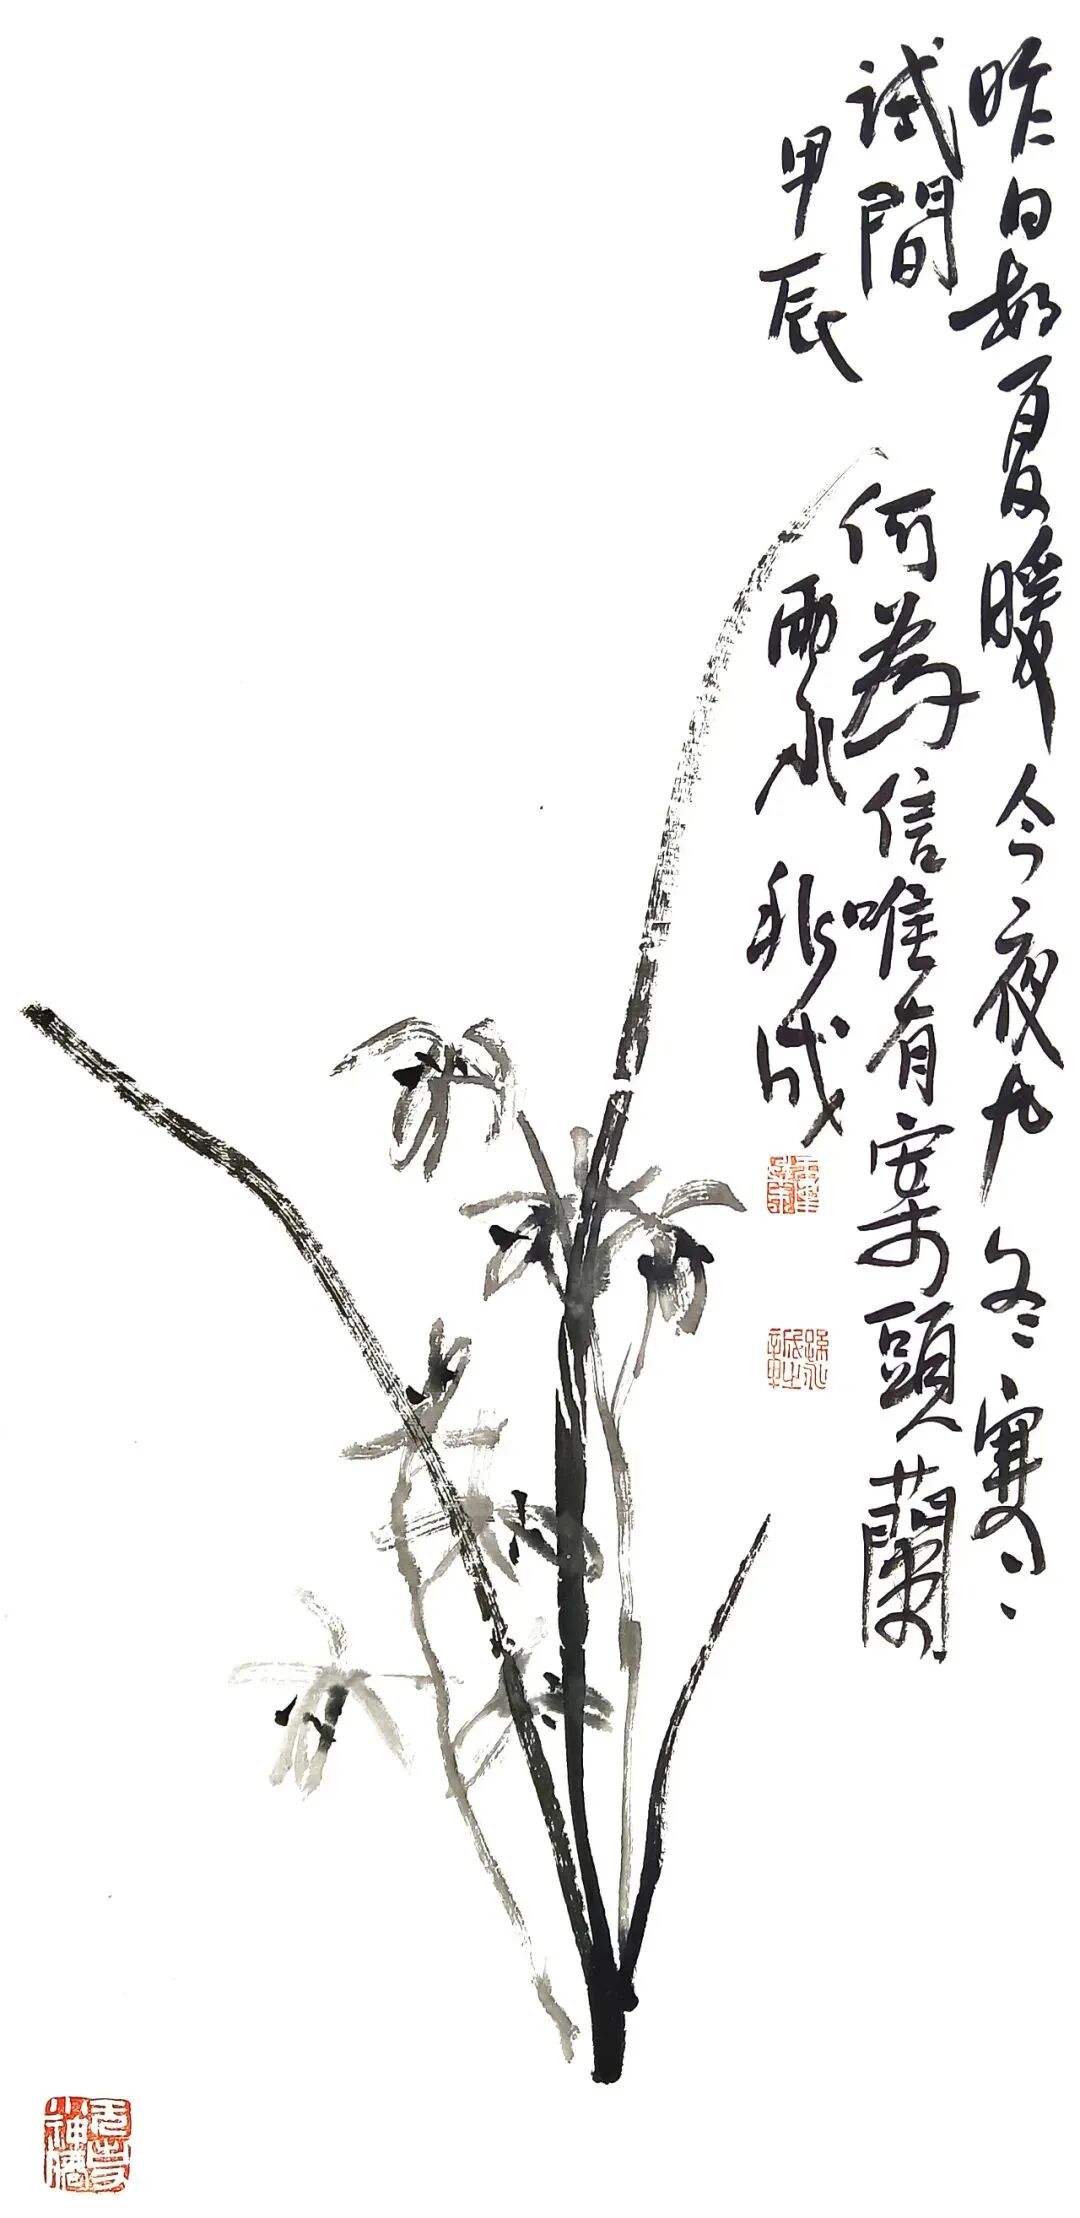 昨日如夏暖今夜九冬寒
試間何為信唯有案頭蘭
甲辰雨水